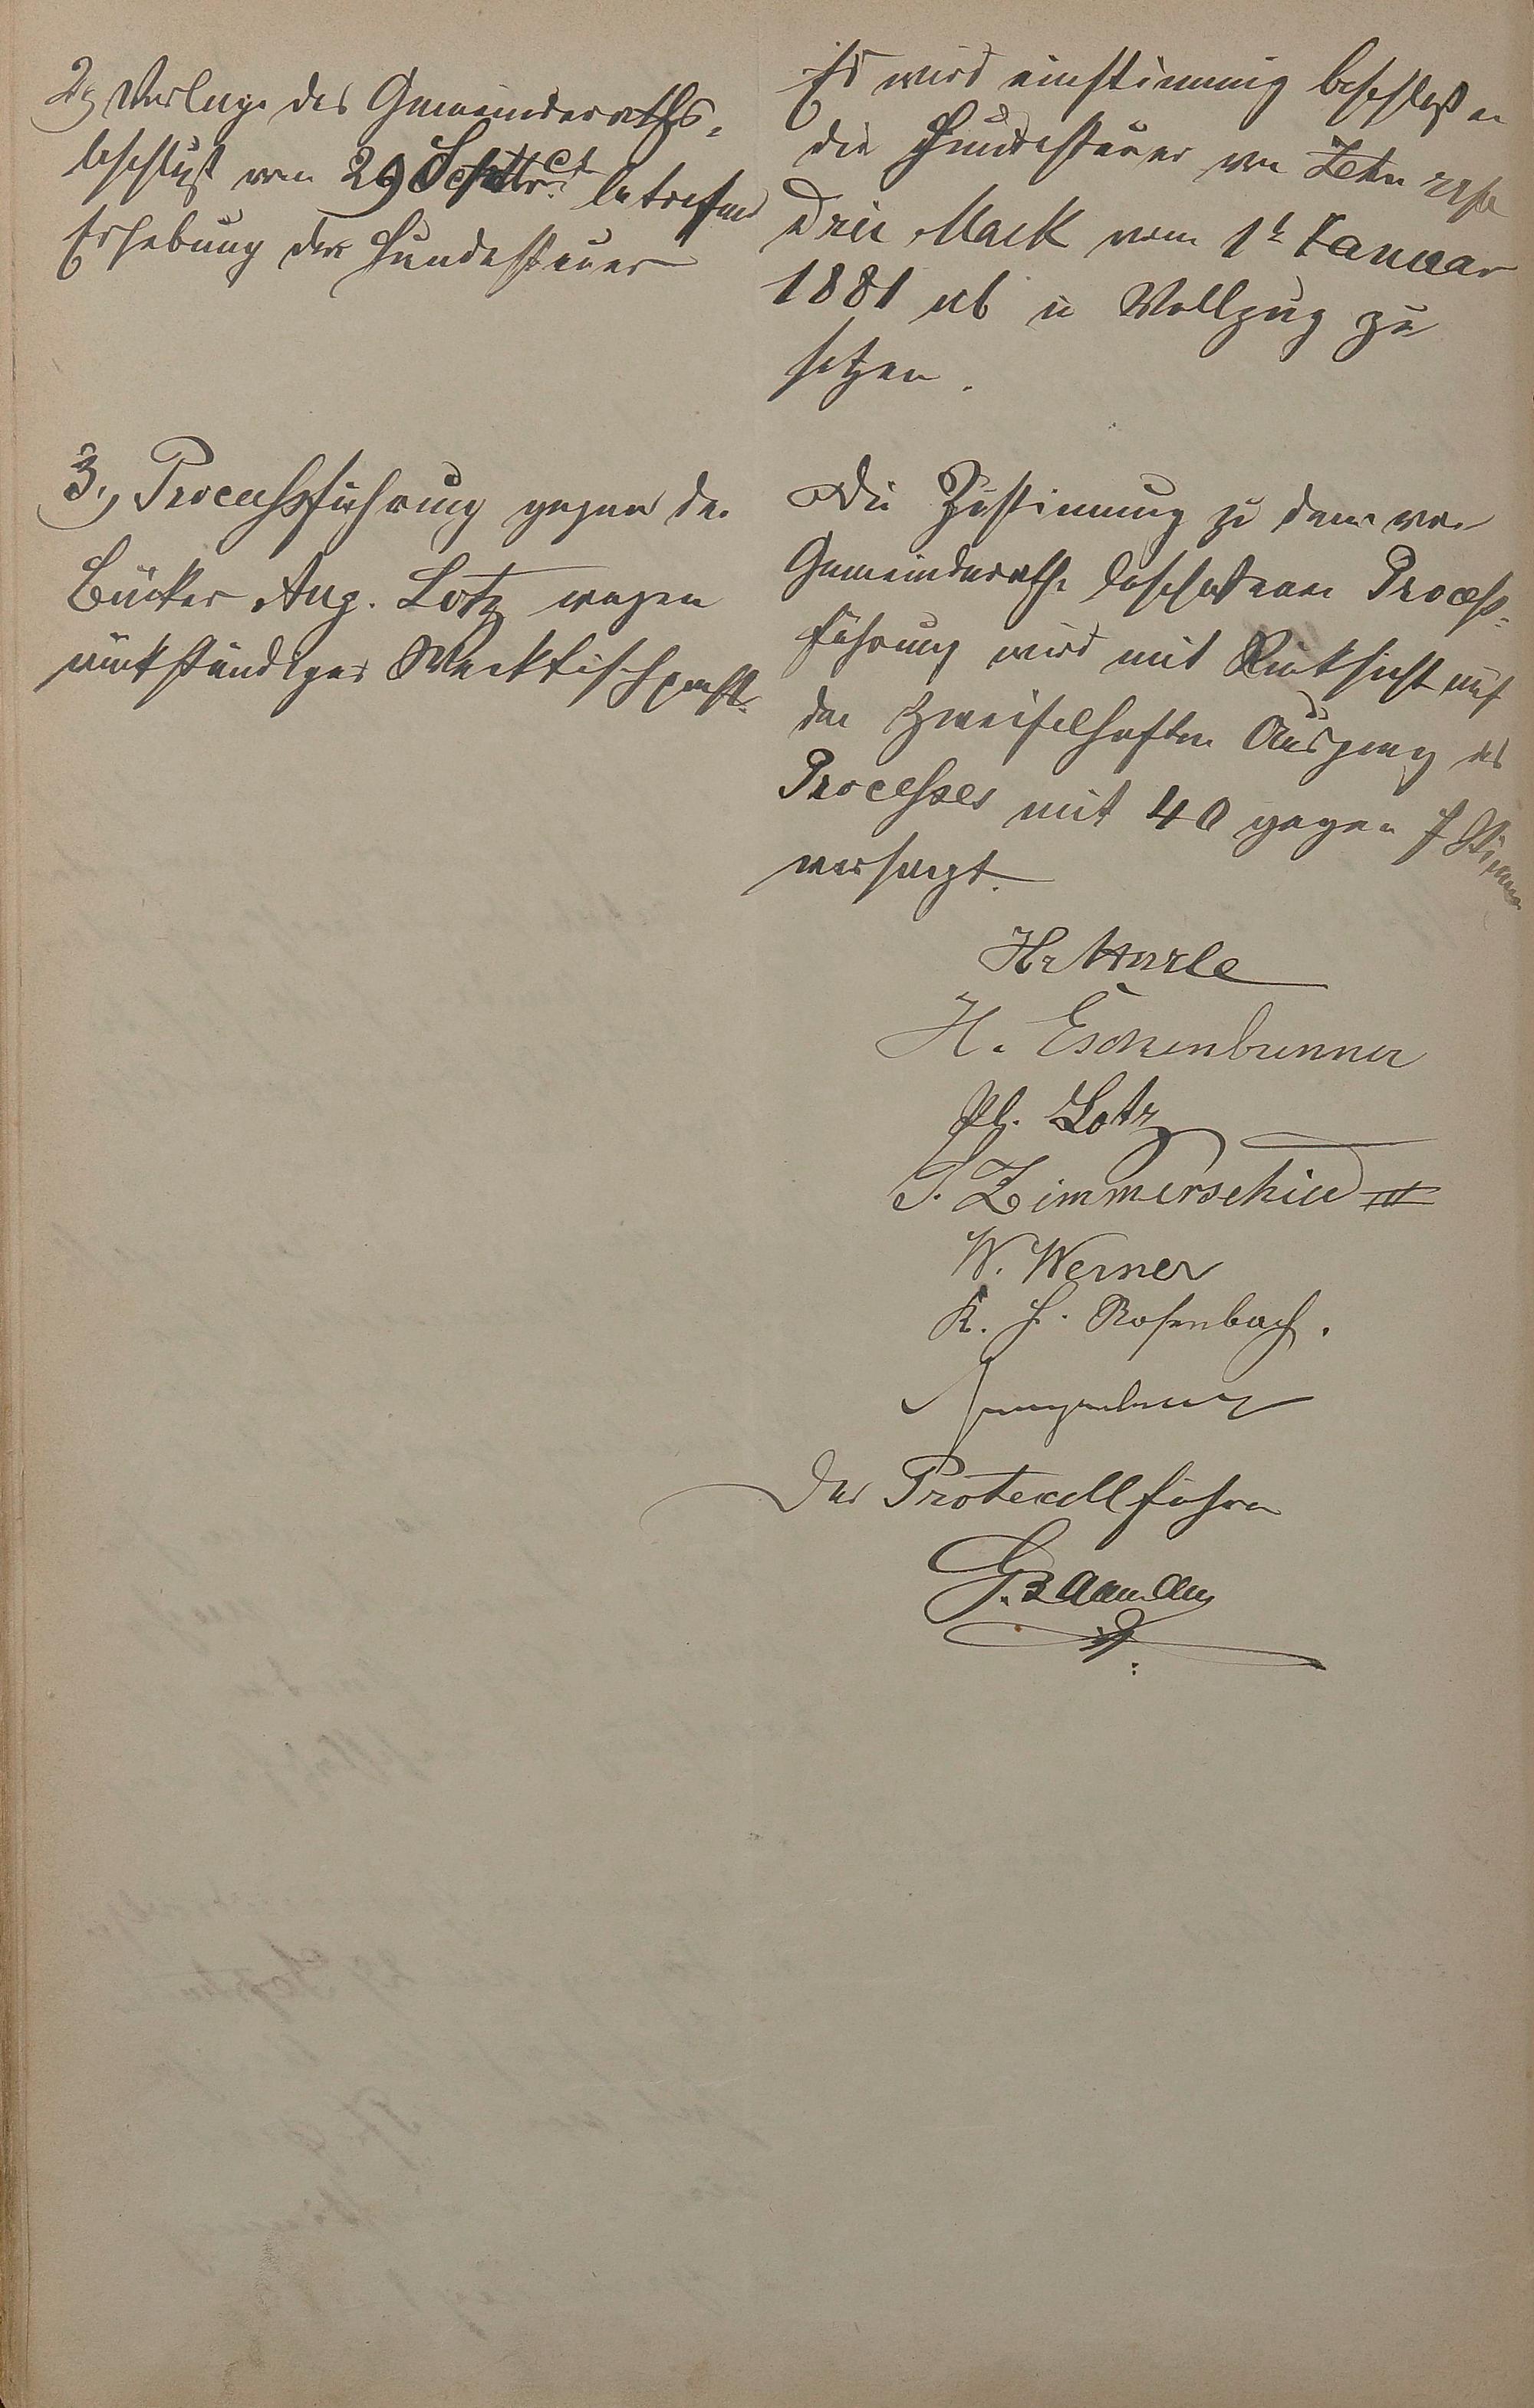 2, Vorlage des Gemeinderaths-
beschluß vom 29 Septbr. ct betrefend
Erhebung der Hundesteuer
Es wird einstimmig beschloßen
die Hundesteuer von Zehn resp
Drei Mark vom 1t Januar
1881 ab in Vollzug zu
setzen.
3, Procehsführung gegen den
Bäcker Aug. Lotz wegen
rückständiger Marktfischpacht.
Die Zustimmung zu dem von
Gemeinderathe beschloßenen Proceß-
führung wird mit Rücksicht auf
den zweifelhaften Ausgang des
Processes mit 40 gegen 7 Stimmen
versagt.
H. Eschenbrenner
Ph. Lotz
P. Zimmerschied III
W. Werner
K. H. Rosenbach.
Der Protocollführer